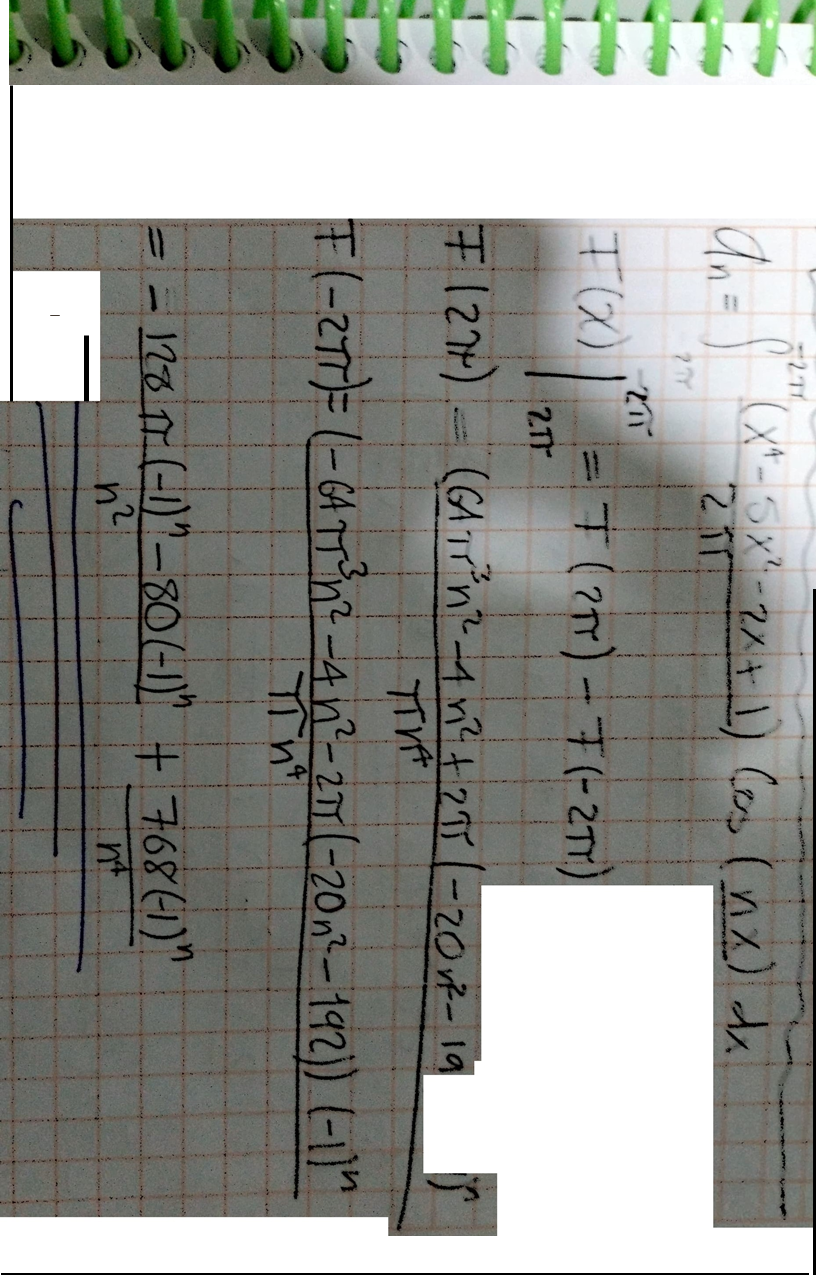 an = ∫ -2π 2π (x⁴ - 5x² - 2x + 1) / 2π cos (nx) dx
F(x) | -2π 2π = F(2π) - F(-2π)
F(2π) = (64π³n² - 4n² + 2π(-20n² - 19 )ⁿ / πn⁴
F(-2π) = (-64π³n² - 4n² - 2π(-20n² - 192)) (-1)ⁿ / πn⁴
= - 128π(-1)ⁿ - 80(-1)ⁿ / n² + 768(-1)ⁿ / n⁴